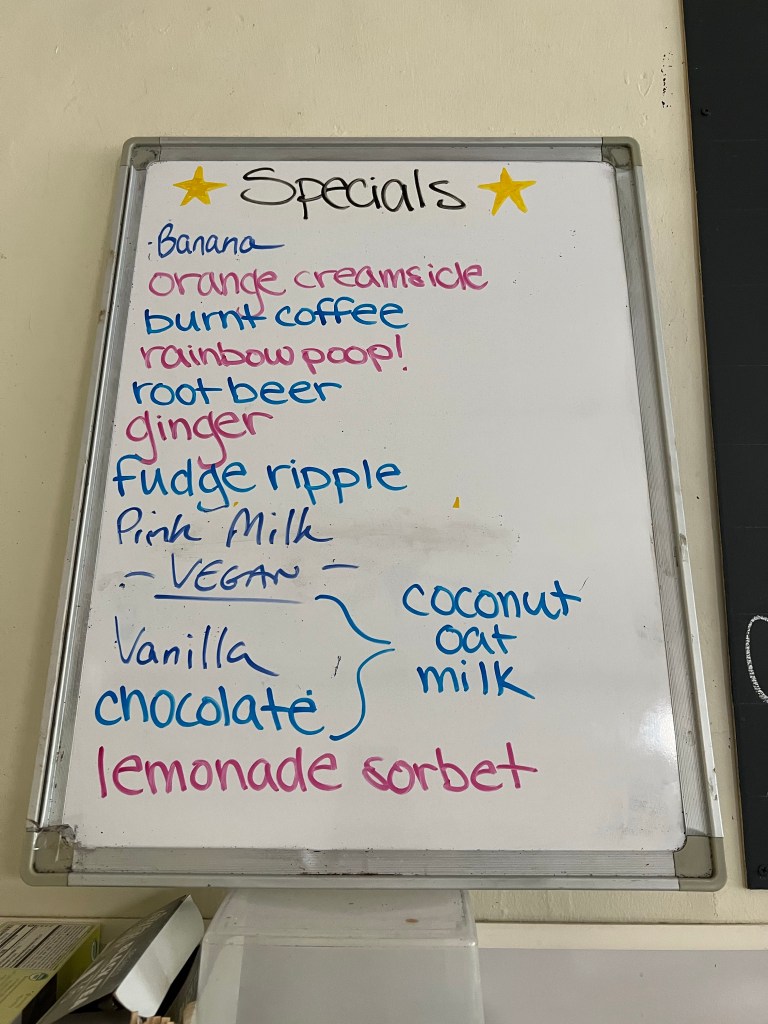 Specials
Banana
orange creamsicle
burnt coffee
rainbow poop!
root beer
ginger
fudge ripple
Pink Milk
- VEGAN -
Vanilla
chocolate
coconut
oat
milk
lemonade sorbet